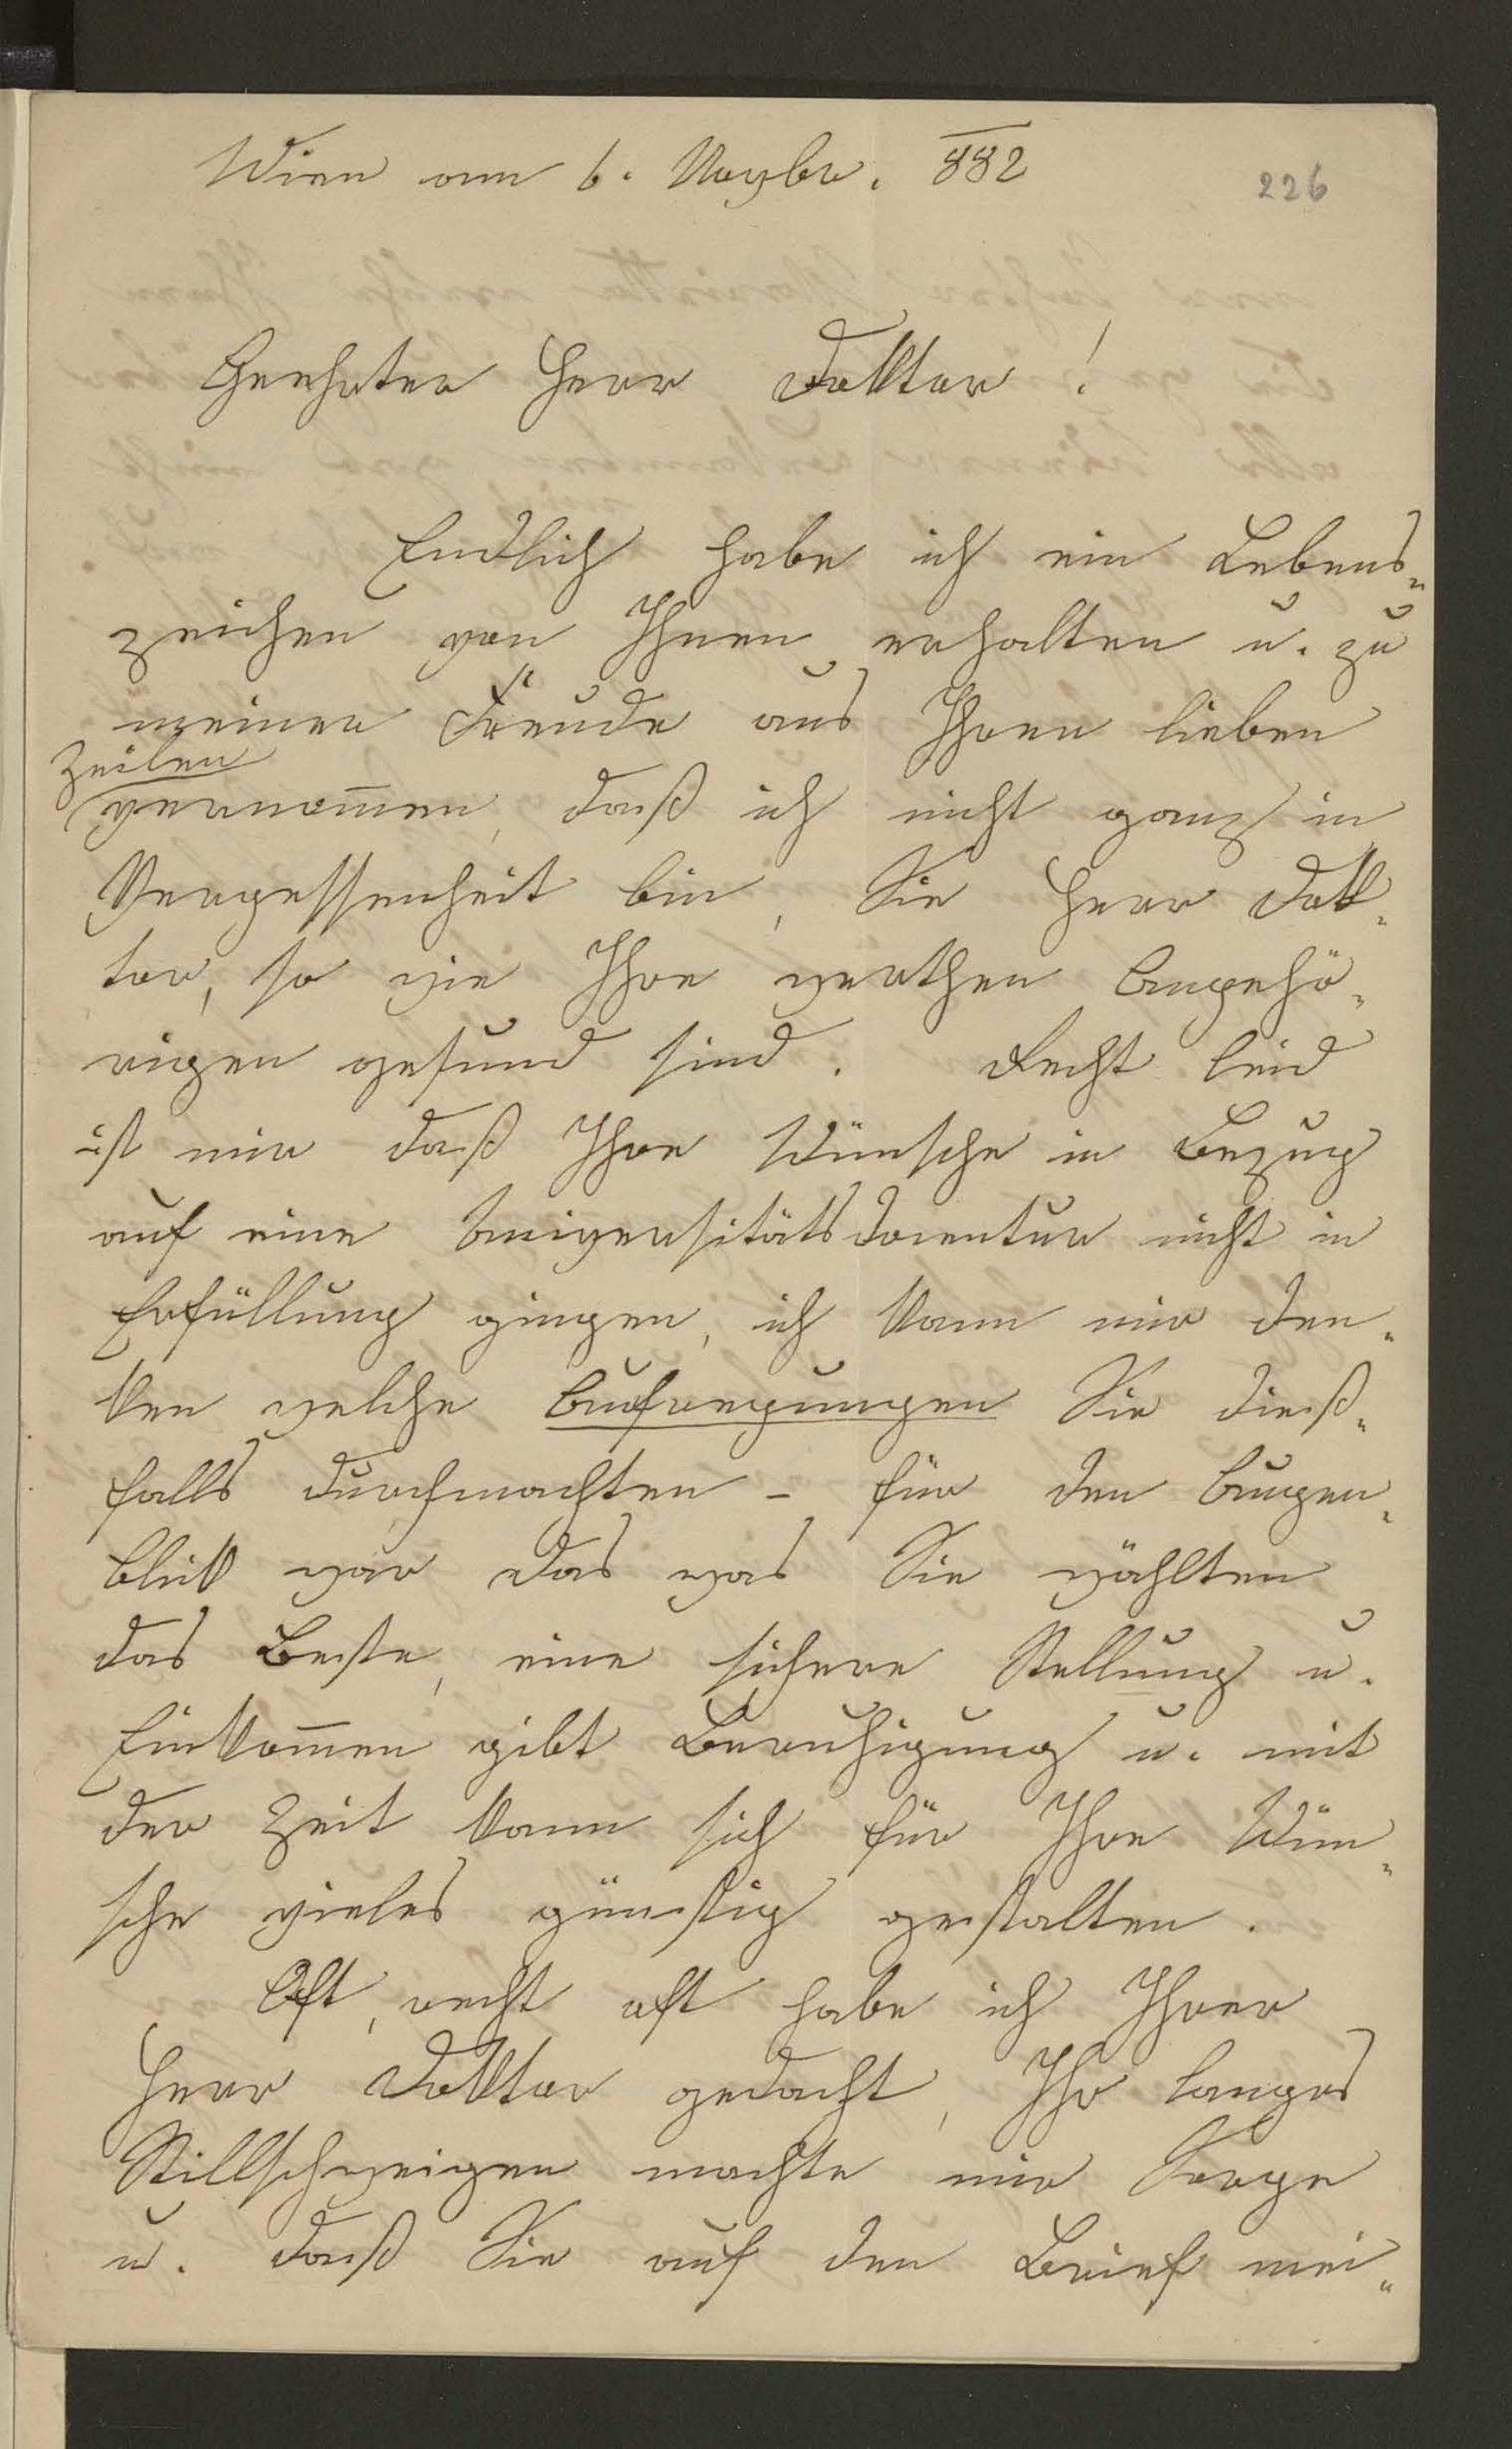 Wien am 6. Novbr. 882
226
Geehrter Herr Doktor!
Endlich habe ich ein Lebens-
zeichen von Ihnen erhalten u. zu
meiner Freude aus Ihren lieben
Zeilen
vernom̅en, daß ich nicht ganz in
Vergessenheit bin, Sie Herr Dok-
tor, so wie Ihre werthen Angehö-
rigen gesund sind. Recht leid
ist mir daß Ihre Wünsche in Bezug
auf eine Universitätsdocentur nicht in
Erfüllung gingen, ich kann mir den-
ken welche Aufregungen Sie dieß-
falls durchmachten – für den Augen-
blik war das was Sie wählten
das Beste, eine sichere Stellung u.
Einkom̅en gibt Beruhigung u. mit
der Zeit kann sich für Ihre Wün-
sche vieles günstig gestalten.
Oft, recht oft habe ich Ihrer
Herr Doktor gedacht, Ihr langes
Stillschweigen machte mir Sorge
u. daß Sie auf den Brief mei-